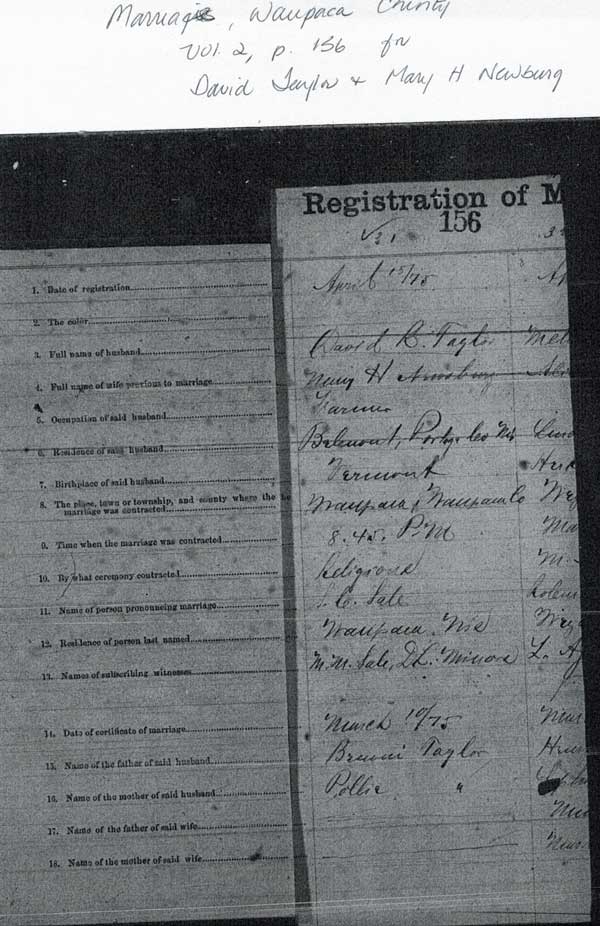 Marriages, Waupaca County
Vol. 2, p. 156 for
David Taylor + Mary H Newburg
Registration of M
156
31
1. Date of registration April 15/75
2. The color
3. Full name of husband David R. Taylor
4. Full name of wife previous to marriage Mary H
5. Occupation of said husband Farmer
6. Residence of said husband Belmont, Portge Co Wis
7. Birthplace of said husband Vermont
8. The place, town or township, and county where the
marriage was contracted Waupaca, Waupaca Co
9. Time when the marriage was contracted 8.45. P.M
10. By what ceremony contracted Religious
11. Name of person pronouncing marriage Sale
12. Residence of person last named Waupaca Wis
13. Names of subscribing witnesses M.M. Sale, D.L. Minora
14. Date of certificate of marriage March 10/75
15. Name of the father of said husband Taylor
16. Name of the mother of said husband Pollie "
17. Name of the father of said wife
18. Name of the mother of said wife